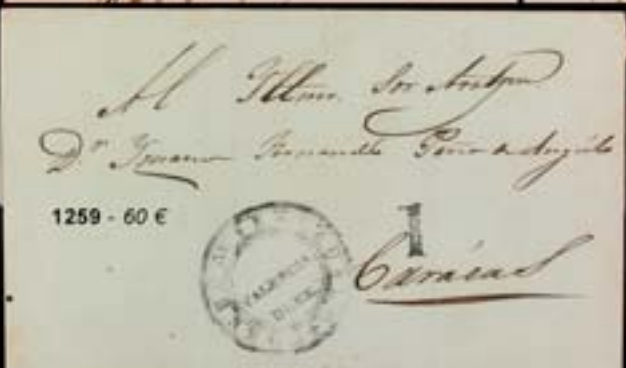 Al Illmo. Sor Arzbpo
Dr Ignacio Fernandez Peña
1259 - 60 €
1
VALENCIA
Carácas